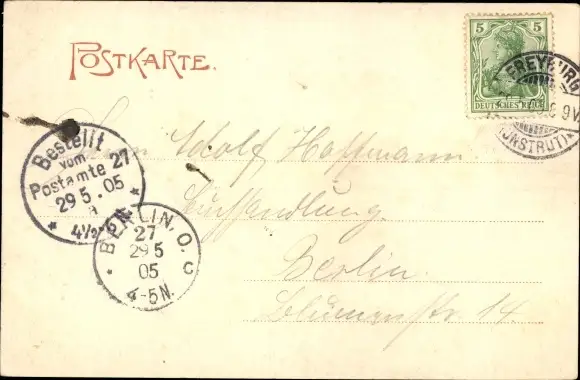 POSTKARTE.
5 5
DEUTSCHES REICH
FREYBURG
(UNSTRUT)
Bestellt
vom
Postamte 27
29 5. 05
* 4½-6 N. *
BERLIN, O. C
27
29 5
05
4-5N.
Herrn Adolf Hoffmann
Buchhandlung.
Berlin.
Blumenstr. 14